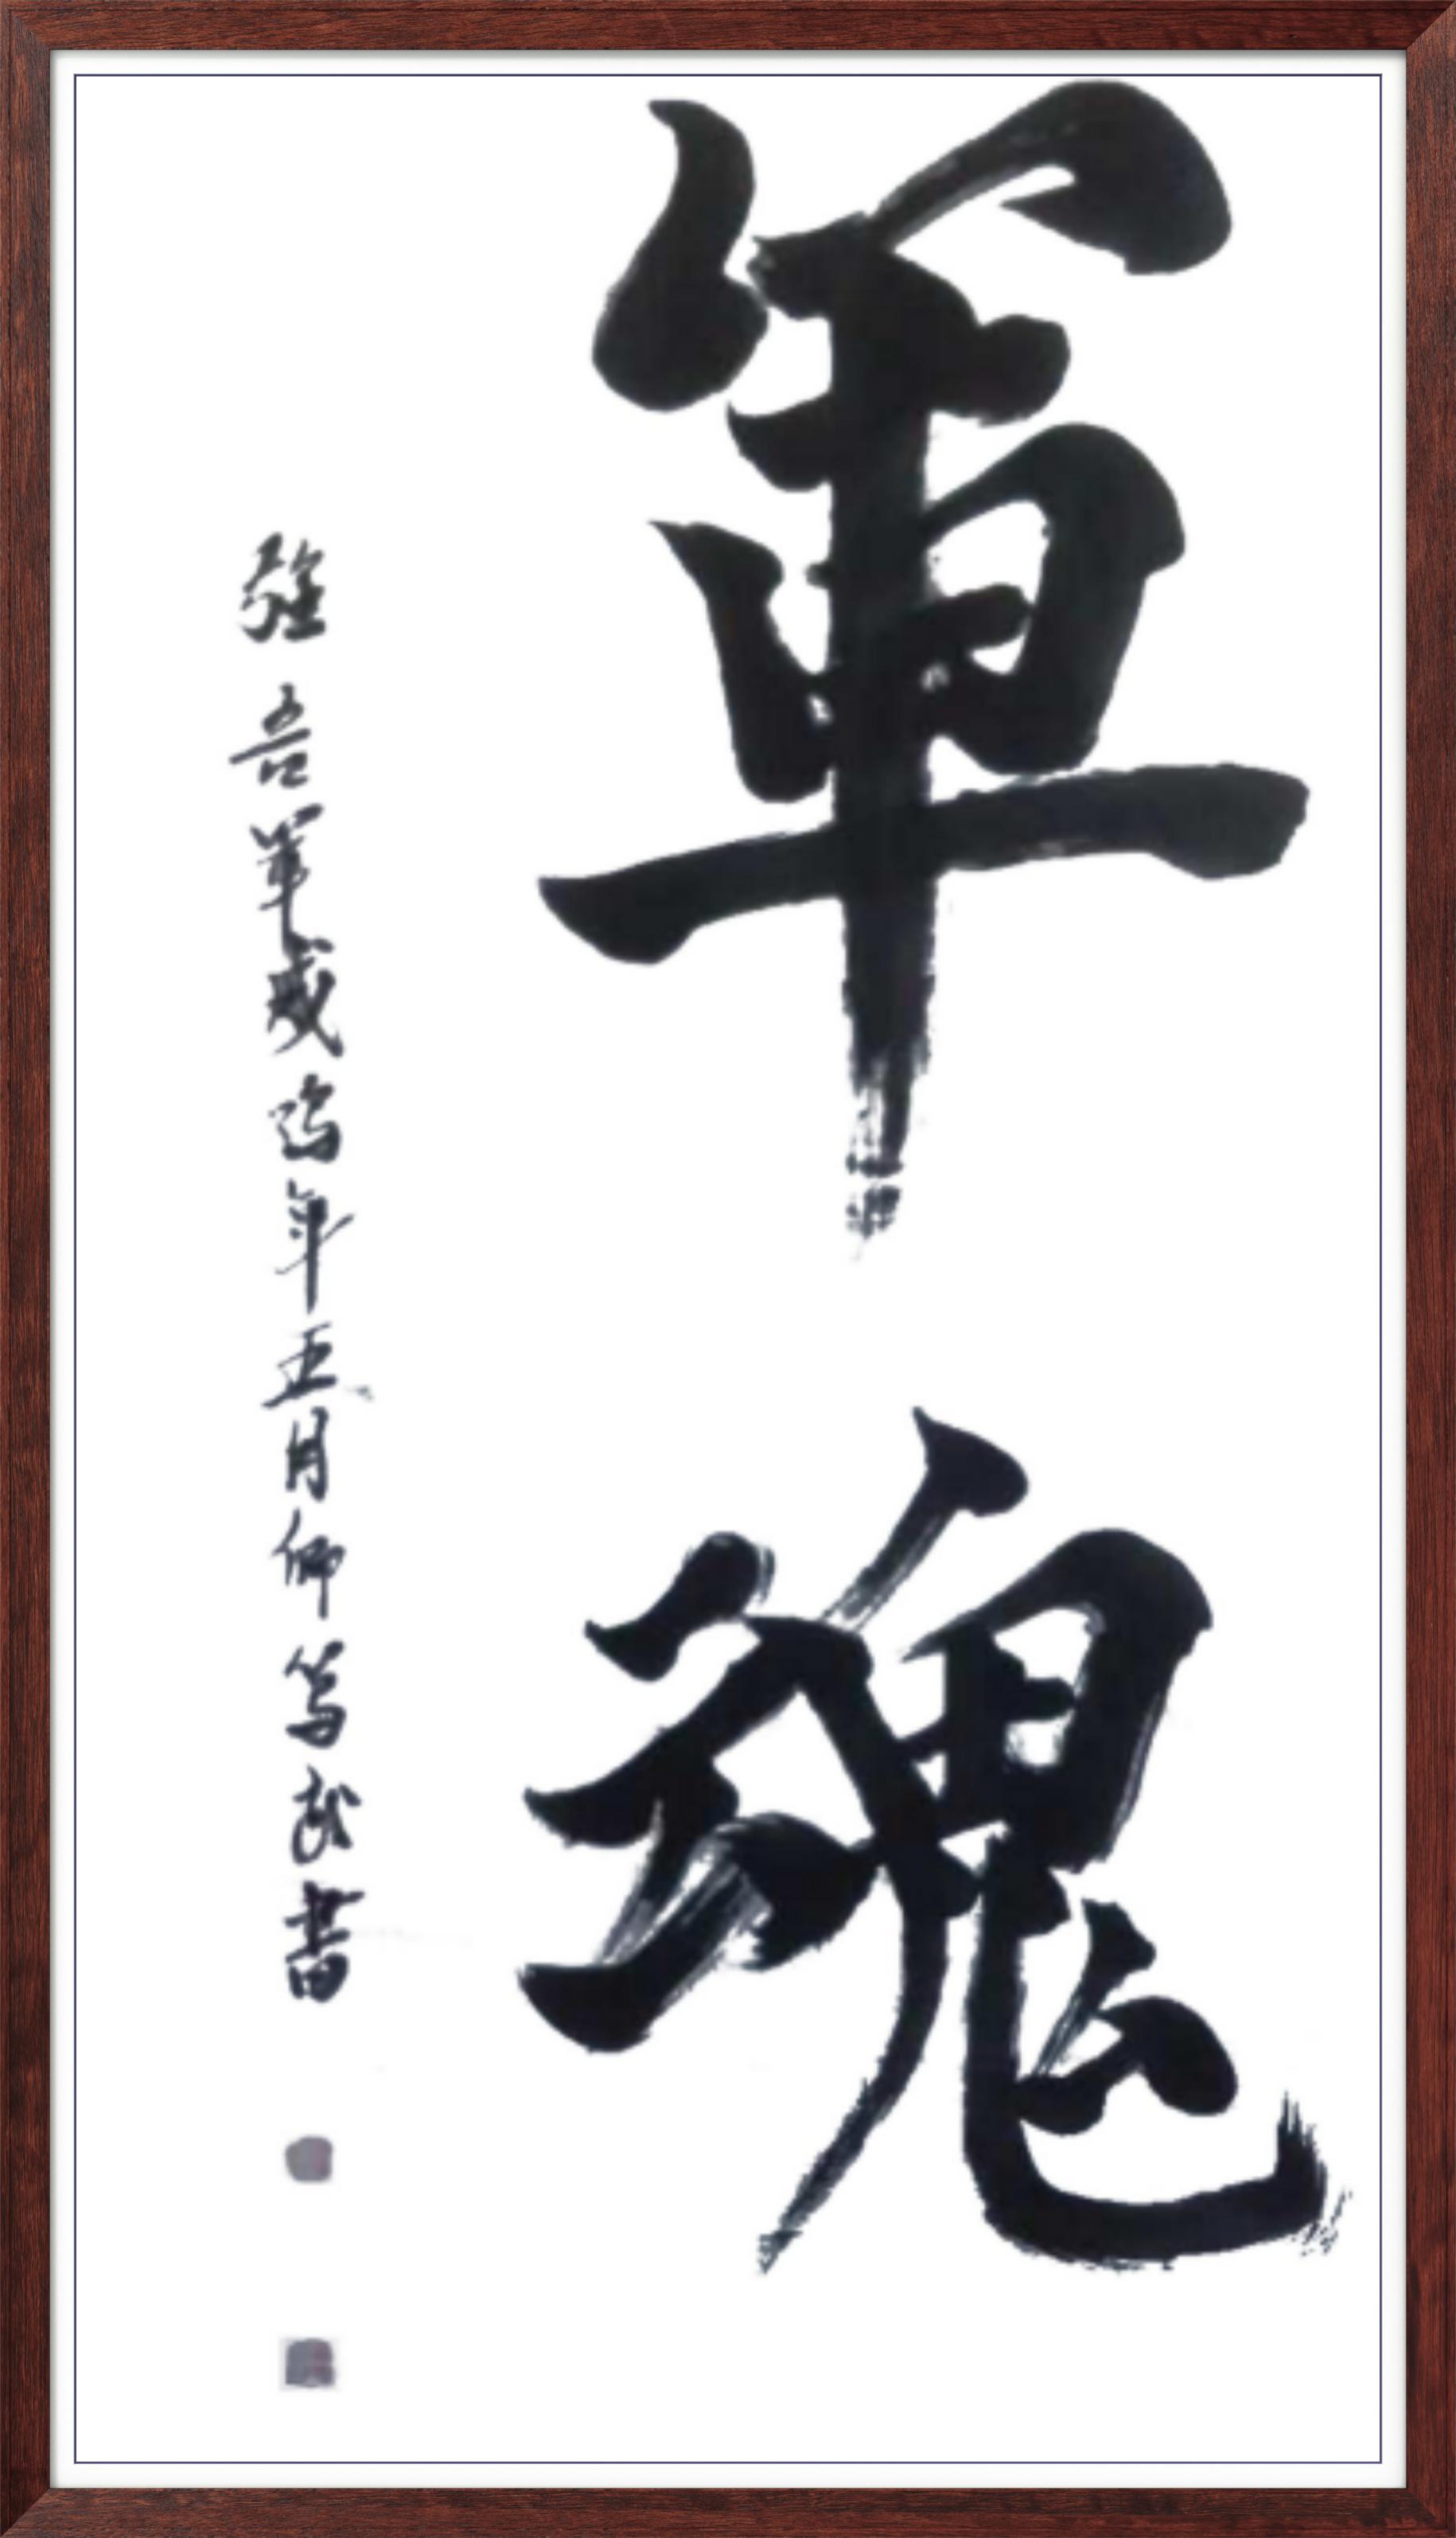 軍魂
強吾軍威 年五月仰篤武書